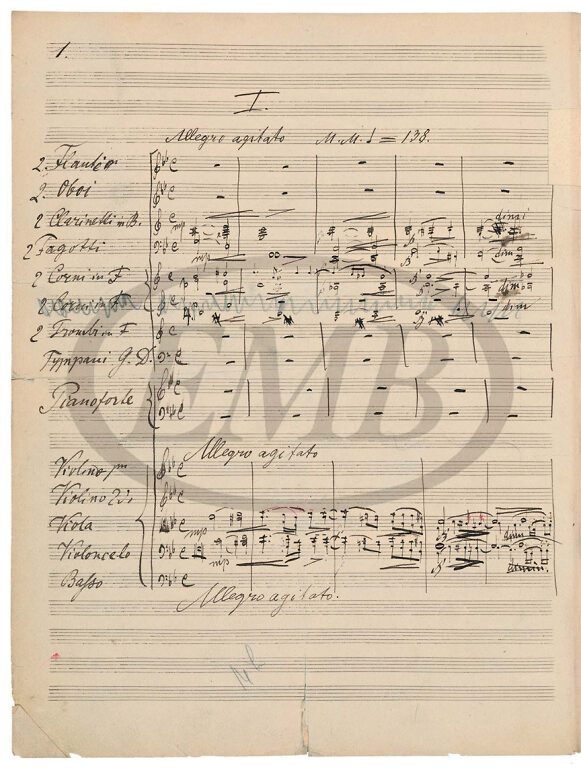 1.
I.
Allegro agitato M.M. ♩ = 138.
2 Flauti
2. Oboi
2 Clarinetti in B.
mp
dim
2 Fagotti
mp
dim
2 Corni in F
p
dim
2 Corni in F
p
dim
2 Trombe in F
Tympani G. D.
Pianoforte
EMB
Allegro agitato
Violino pmo
Violino 2do
Viola
mp
dim
Violoncelo
mp
dimin.
Basso
Allegro agitato.